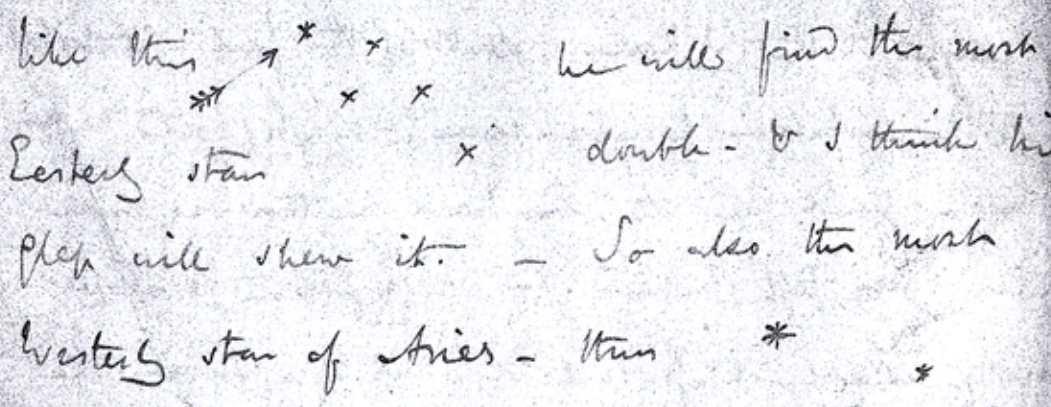 like this he will find the most
Easterly star double - & I think hi
glass will shew it. - So also the most
Westerly star of Aries - thus